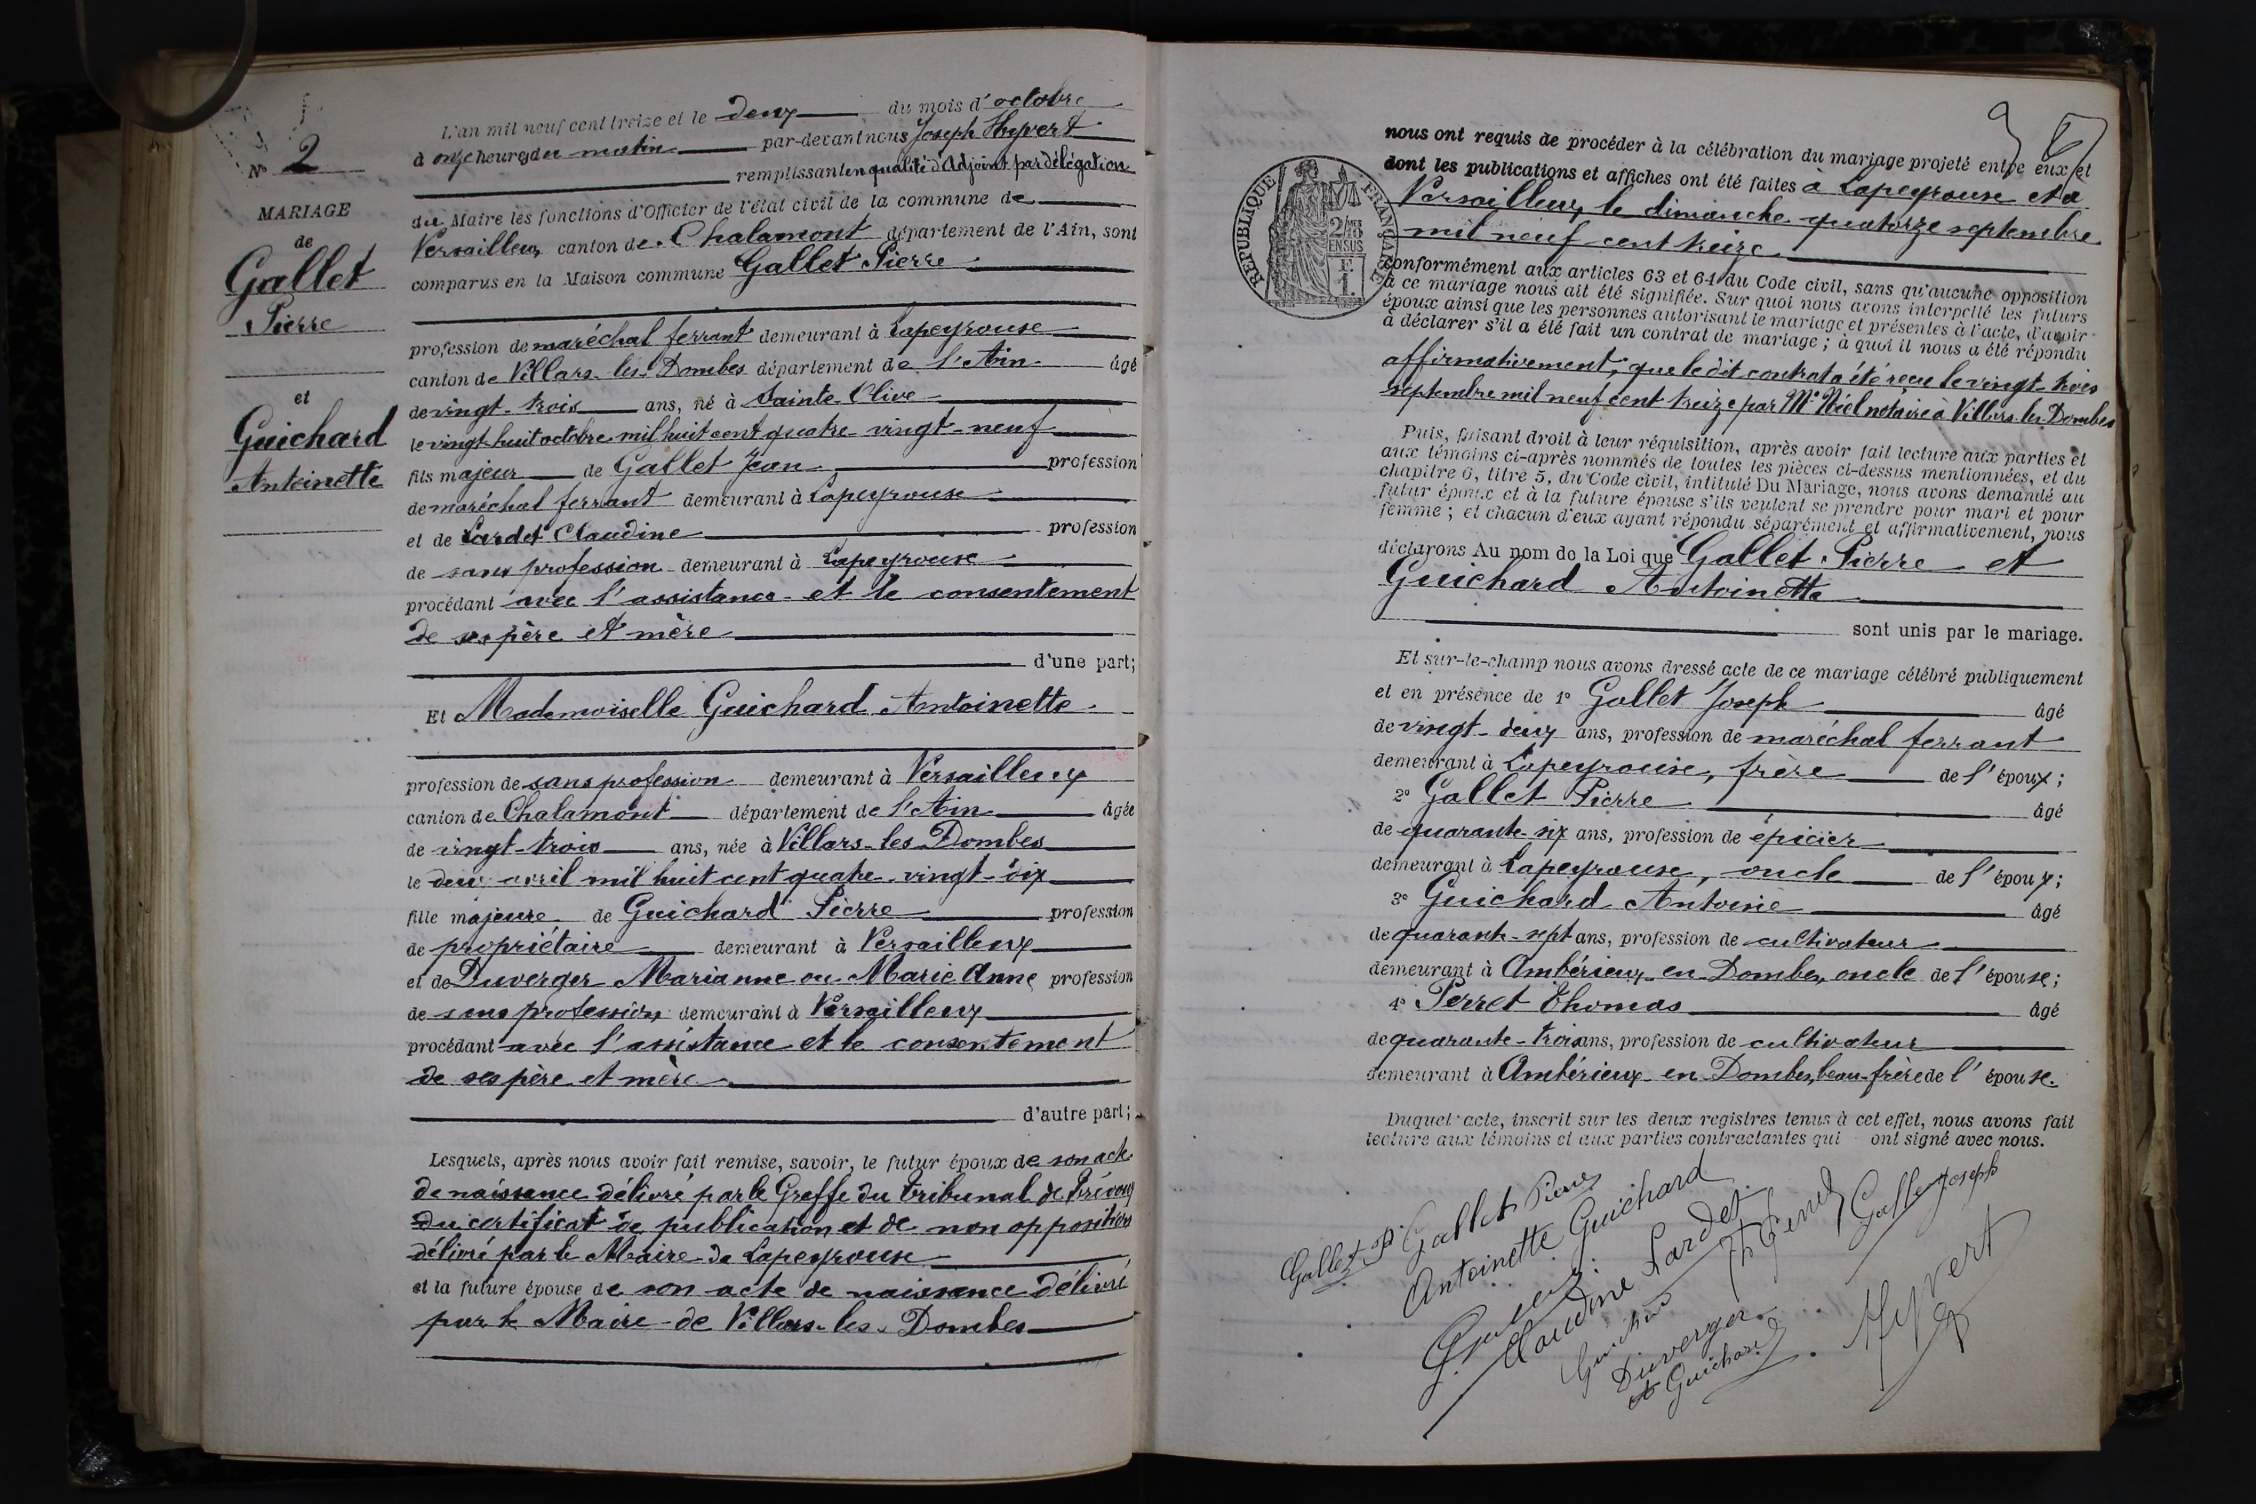 N° 2
MARIAGE
de
Gallet
Pierre
et
Guichard
Antoinette
L'an mil neuf cent treize et le deux du mois d'octobre
à onze heures du matin par-devant nous Joseph Hyvert
remplissant en qualité d'Adjoint par délégation
du Maire les fonctions d'Officier de l'état civil de la commune de
Versailleux, canton de Chalamont département de l'Ain, sont
comparus en la Maison commune Gallet Pierre
profession de maréchal ferrant demeurant à Lapeyrouse
canton de Villars-les-Dombes département de l'Ain âgé
de vingt-trois ans, né à Sainte-Olive
le vingt huit octobre mil huit cent quatre-vingt-neuf
fils majeur de Gallet Jean profession
de maréchal ferrant demeurant à Lapeyrouse
et de Lardet Claudine profession
de sans profession demeurant à Lapeyrouse
procédant avec l'assistance et le consentement
de ses père et mère
d'une part;
Et Mademoiselle Guichard Antoinette
profession de sans profession demeurant à Versailleux
canton de Chalamont département de l'Ain âgée
de vingt-trois ans, née à Villars-les-Dombes
le deux avril mil huit cent quatre-vingt-dix
fille majeure de Guichard Pierre profession
de propriétaire demeurant à Versailleux
et de Duverger Marianne ou Marie Anne profession
de sans profession demeurant à Versailleux
procédant avec l'assistance et le consentement
de ses père et mère
d'autre part;
Lesquels, après nous avoir fait remise, savoir, le futur époux de son acte
de naissance délivré par le Greffe du tribunal de Trévoux
du certificat de publication et de non opposition
délivré par le Maire de Lapeyrouse
et la future épouse de son acte de naissance délivré
par le Maire de Villars-les-Dombes
RÉPUBLIQUE FRANÇAISE
2/10
EN SUS
nous ont requis de procéder à la célébration du mariage projeté entre eux et
dont les publications et affiches ont été faites à Lapeyrouse et à
Versailleux le dimanche quatorze septembre
mil neuf cent treize
conformément aux articles 63 et 64 du Code civil, sans qu'aucune opposition
à ce mariage nous ait été signifiée. Sur quoi nous avons interpellé les futurs
époux ainsi que les personnes autorisant le mariage et présentes à l'acte, d'avoir
à déclarer s'il a été fait un contrat de mariage; à quoi il nous a été répondu
affirmativement, que ledit contrat a été reçu le vingt-trois
septembre mil neuf cent treize par Me Niel notaire à Villars-les-Dombes
Puis, faisant droit à leur réquisition, après avoir fait lecture aux parties et
aux témoins ci-après nommés de toutes les pièces ci-dessus mentionnées, et du
chapitre 6, titre 5, du Code civil, intitulé Du Mariage, nous avons demandé au
futur époux et à la future épouse s'ils veulent se prendre pour mari et pour
femme; et chacun d'eux ayant répondu séparément et affirmativement, nous
déclarons Au nom de la Loi que Gallet Pierre et
Guichard Antoinette
sont unis par le mariage.
Et sur-le-champ nous avons dressé acte de ce mariage célébré publiquement
et en présence de 1° Gallet Joseph âgé
de vingt-deux ans, profession de maréchal ferrant
demeurant à Lapeyrouse, frère de l'époux;
2° Gallet Pierre âgé
de quarante-six ans, profession de épicier
demeurant à Lapeyrouse, oncle de l'époux;
3° Guichard Antoine âgé
de quarante-sept ans, profession de cultivateur
demeurant à Ambérieux-en-Dombes, oncle de l'épouse;
4° Perret Thomas âgé
de quarante-trois ans, profession de cultivateur
demeurant à Ambérieux-en-Dombes, beau-frère de l'épouse.
Duquel acte, inscrit sur les deux registres tenus à cet effet, nous avons fait
lecture aux témoins et aux parties contractantes qui ont signé avec nous.
Gallet P. Gallet Pierre
Antoinette Guichard
Gallet Joseph
Claudine Lardet
Guichard
Duverger
Guichard
Hyvert